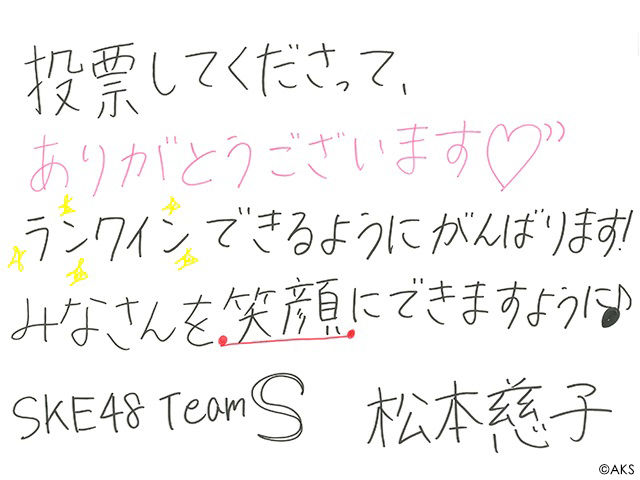 投票してくださって、
ありがとうございます♡”
ランクインできるようにがんばります!
みなさんを笑顔にできますように♪
SKE48 Team S 松本慈子
©AKS